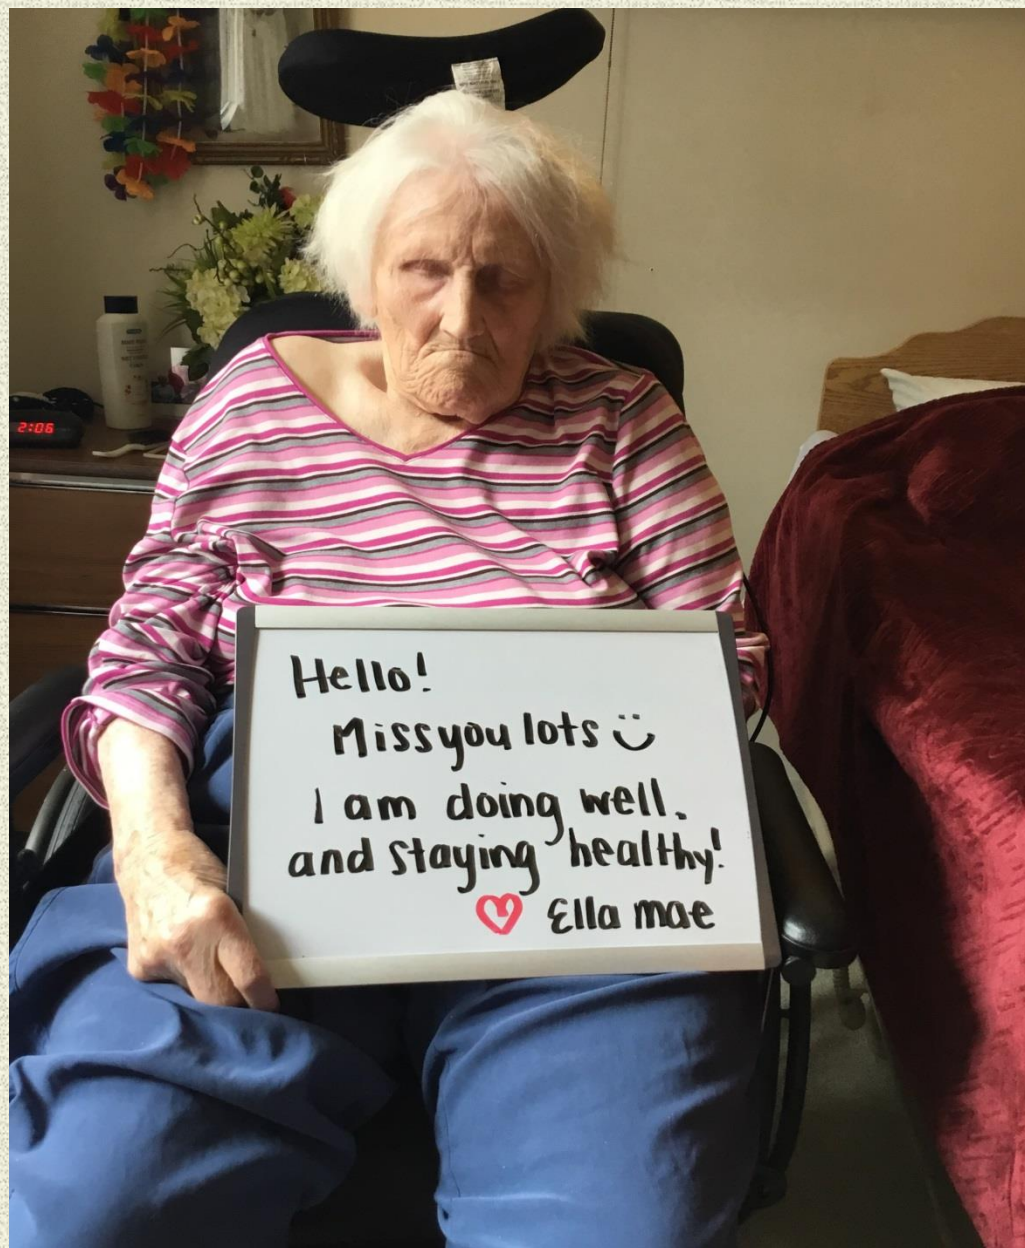 Hello!
Miss you lots
I am doing well.
and staying healthy!
Ella mae
2:06